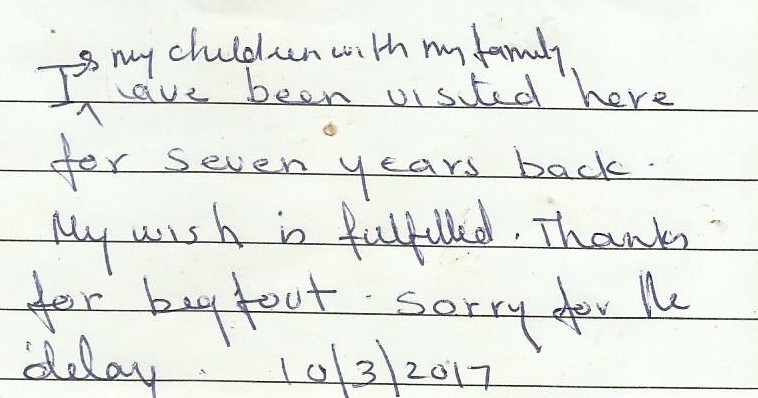 & my children with my family
I have been visited here
for seven years back.
My wish is fulfilled. Thanks
for beg fout. Sorry for the
delay. 10/3/2017